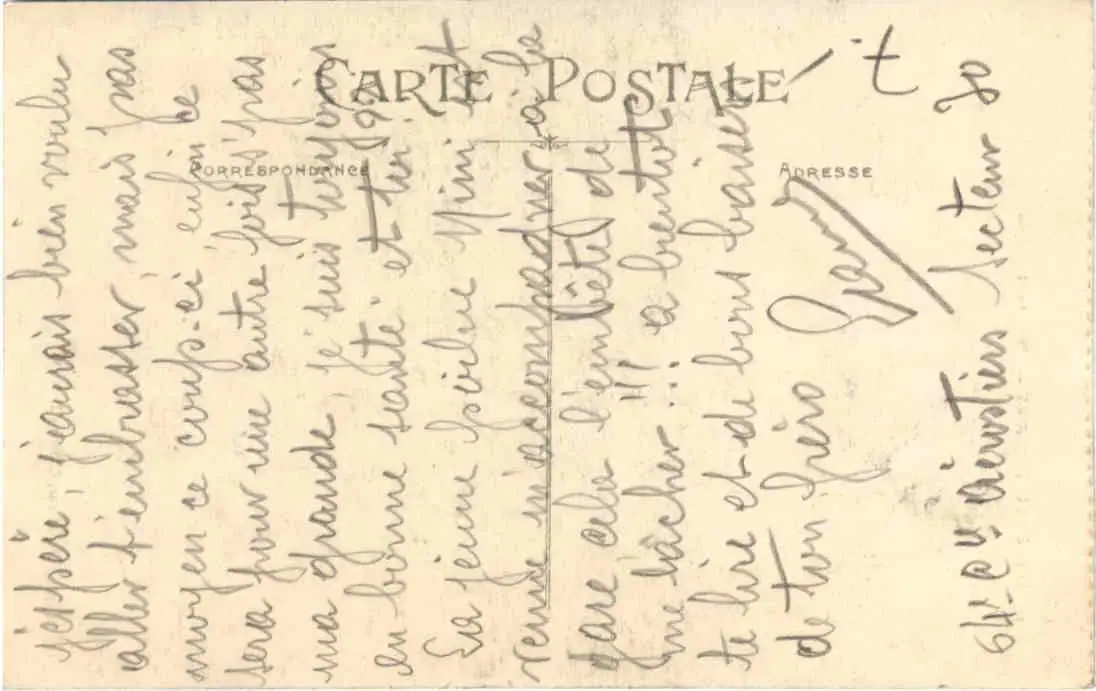 CARTE POSTALE
CORRESPONDANCE
ADRESSE
j'espère, j'aurais bien voulu
aller t'embrasser, mais pas
moyen ce coup-ci enfin ce
sera pour une autre fois s'pas
ma grande, je suis toujours
en bonne santé. et toi?
La jeune soeur Mimi est
venue m'accompagner à la
gare cela l'embête de
me lâcher!!! a bientôt
te lire et de bons baisers
de ton frère
64e Cie Aérostiers Secteur 80